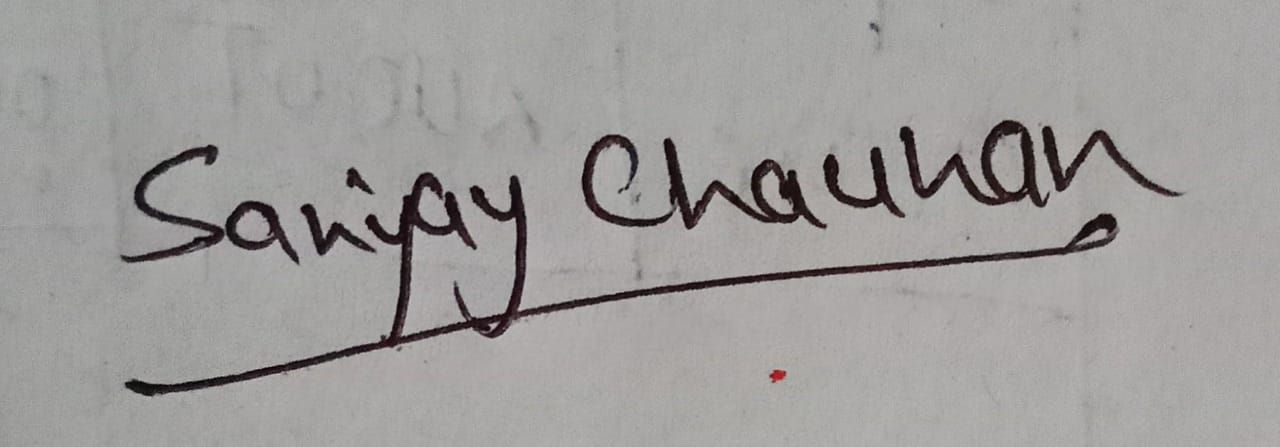 Sanjay Chauhan